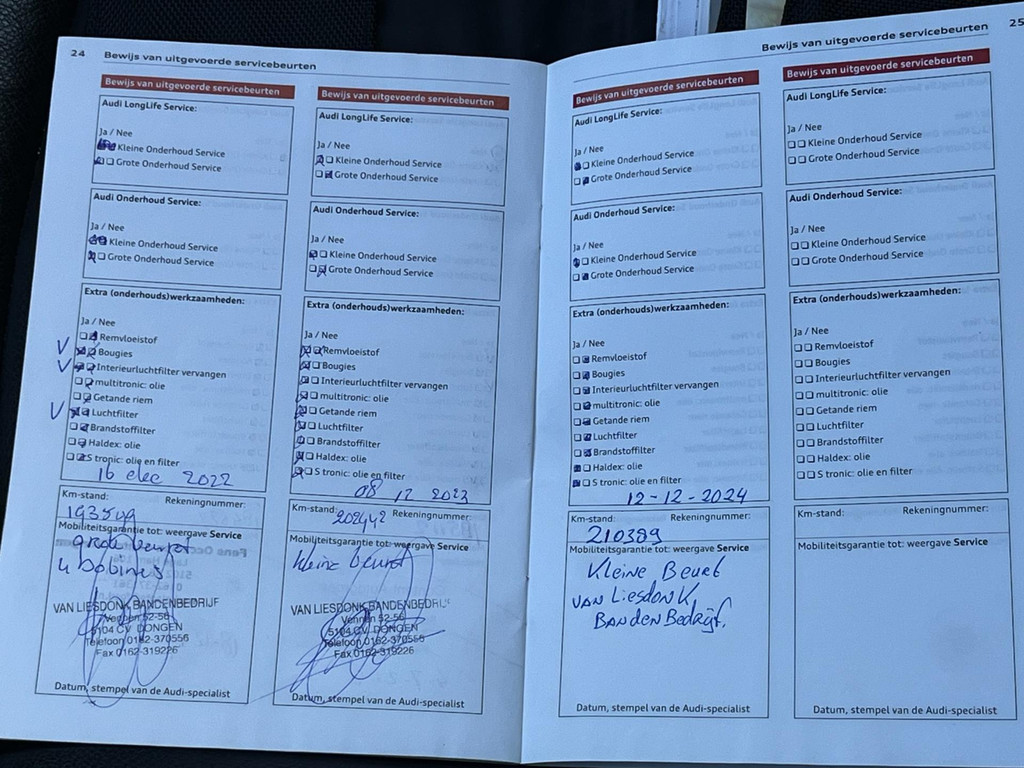 24 Bewijs van uitgevoerde servicebeurten
Bewijs van uitgevoerde servicebeurten
Audi LongLife Service:
Ja / Nee
Kleine Onderhoud Service
Grote Onderhoud Service
Audi Onderhoud Service:
Ja / Nee
Kleine Onderhoud Service
Grote Onderhoud Service
Extra (onderhouds)werkzaamheden:
Ja / Nee
Remvloeistof
Bougies
Interieurluchtfilter vervangen
multitronic: olie
Getande riem
Luchtfilter
Brandstoffilter
Haldex: olie
S tronic: olie en filter
16 dec 2022
Km-stand: Rekeningnummer:
Mobiliteitsgarantie tot: weergave Service
grote beurt
4 bobines
VAN LIESDONK BANDENBEDRIJF
Vennen 52-56
5104 CV DONGEN
Telefoon 0162-370555
Fax 0162-319226
Datum, stempel van de Audi-specialist
Bewijs van uitgevoerde servicebeurten
Audi LongLife Service:
Ja / Nee
Kleine Onderhoud Service
Grote Onderhoud Service
Audi Onderhoud Service:
Ja / Nee
Kleine Onderhoud Service
Grote Onderhoud Service
Extra (onderhouds)werkzaamheden:
Ja / Nee
Remvloeistof
Bougies
Interieurluchtfilter vervangen
multitronic: olie
Getande riem
Luchtfilter
Brandstoffilter
Haldex: olie
S tronic: olie en filter
08 12 2023
Km-stand: 202442 Rekeningnummer:
Mobiliteitsgarantie tot: weergave Service
kleine beurt
VAN LIESDONK BANDENBEDRIJF
Vennen 52-56
5104 CV DONGEN
Telefoon 0162-370555
Fax 0162-319226
Datum, stempel van de Audi-specialist
Bewijs van uitgevoerde servicebeurten 25
Bewijs van uitgevoerde servicebeurten
Audi LongLife Service:
Ja / Nee
Kleine Onderhoud Service
Grote Onderhoud Service
Audi Onderhoud Service:
Ja / Nee
Kleine Onderhoud Service
Grote Onderhoud Service
Extra (onderhouds)werkzaamheden:
Ja / Nee
Remvloeistof
Bougies
Interieurluchtfilter vervangen
multitronic: olie
Getande riem
Luchtfilter
Brandstoffilter
Haldex: olie
S tronic: olie en filter
12-12-2024
Km-stand: Rekeningnummer:
210389
Mobiliteitsgarantie tot: weergave Service
Kleine Beurt
VAN LiesdonK
BandenBedrijf.
Datum, stempel van de Audi-specialist
Bewijs van uitgevoerde servicebeurten
Audi LongLife Service:
Ja / Nee
Kleine Onderhoud Service
Grote Onderhoud Service
Audi Onderhoud Service:
Ja / Nee
Kleine Onderhoud Service
Grote Onderhoud Service
Extra (onderhouds)werkzaamheden:
Ja / Nee
Remvloeistof
Bougies
Interieurluchtfilter vervangen
multitronic: olie
Getande riem
Luchtfilter
Brandstoffilter
Haldex: olie
S tronic: olie en filter
Km-stand: Rekeningnummer:
Mobiliteitsgarantie tot: weergave Service
Datum, stempel van de Audi-specialist